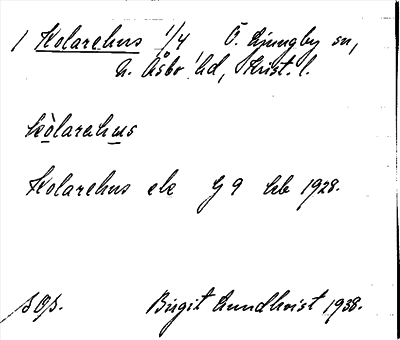 1 Kolarehus 1/4 Ö. Ljungby sn,
N. Åsbo hd, Krist. l.
kòlarahus
Kolarehus ek G 9 hb 1928.
Birgit Lundkvist 1938.